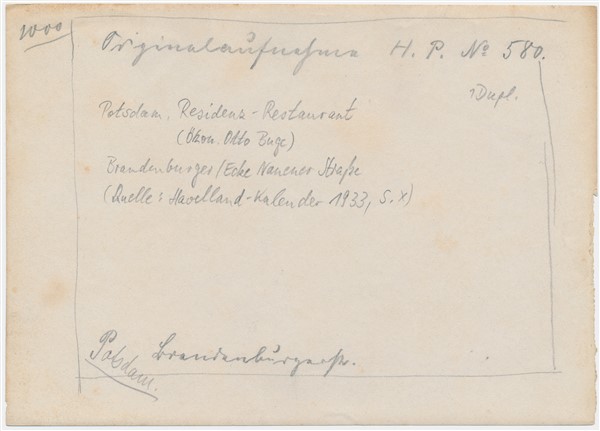 1000
Originalaufnahme H. P. No 580.
1 Dupl.
Potsdam, Residenz-Restaurant
(Ökon. Otto Buge)
Brandenburger/Ecke Nauener Straße
(Quelle: Havelland-Kalender 1933, S. X)
Potsdam.
Brandenburgerstr.